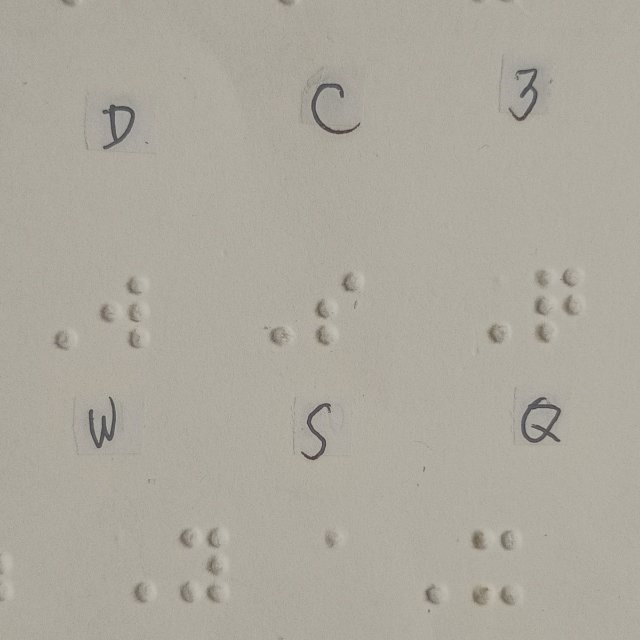 D C 3
W S Q